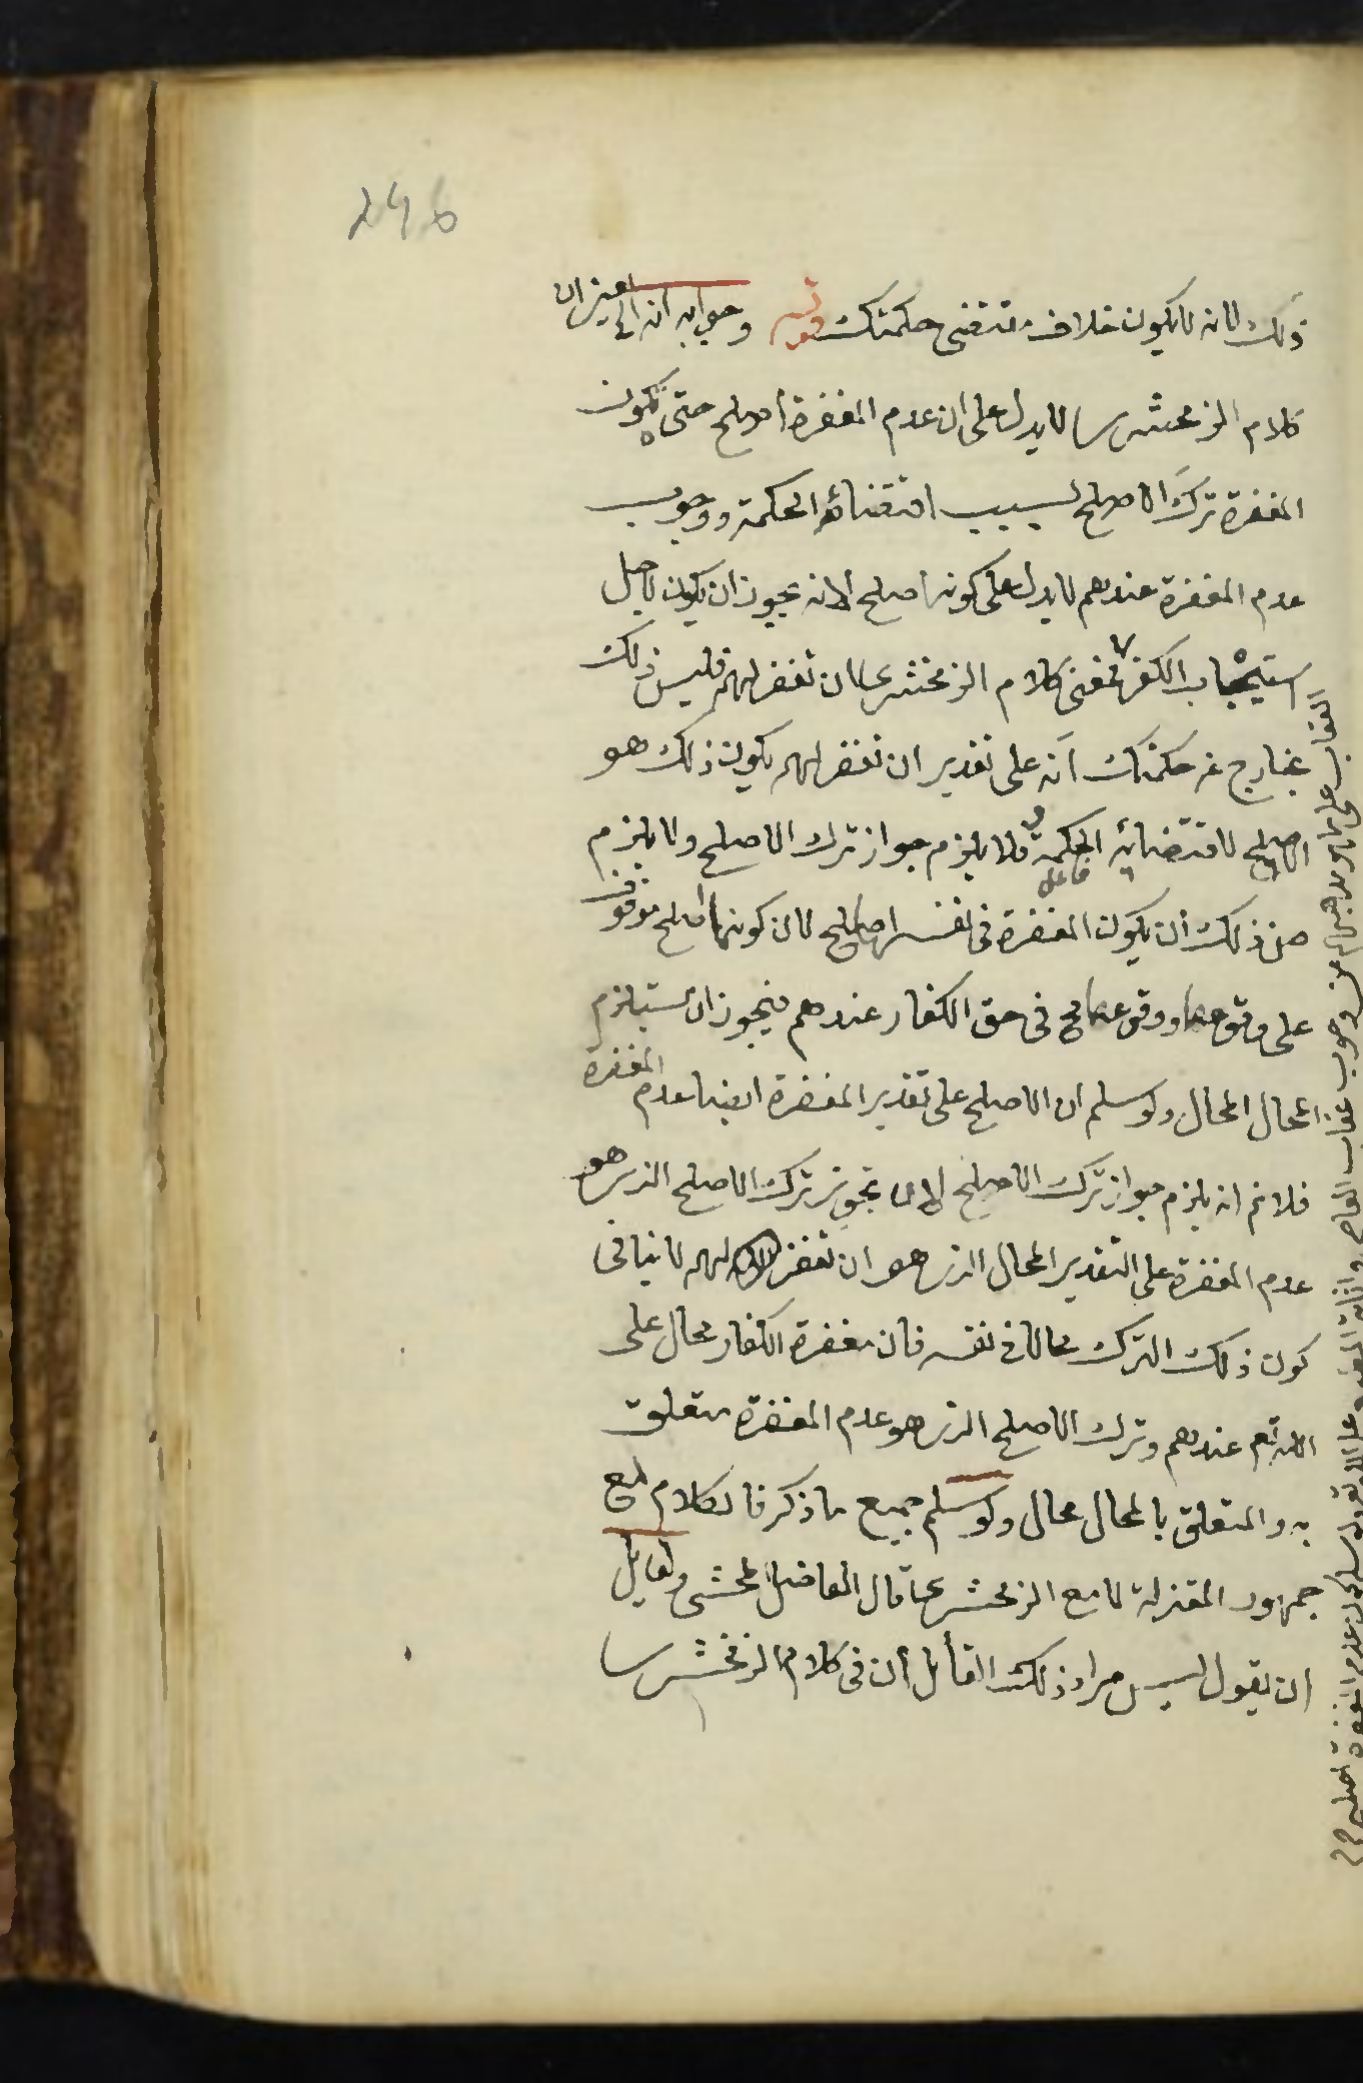 246
ذلك لانه لا يكون خلاف مقتضى حكمتك قوله وجوابه انه الخ يعنى ان
كلام الزمخشرى لا يدل على ان عدم المغفرة اصلح حتى تكون
المغفرة ترك الاصلح بسبب اقتضائه الحكمة ووجوب
عدم المغفرة عندهم لا يدل على كونها اصلح لانه يجوز ان يكون لاجل
استيجاب الكفر فمعنى كلام الزمخشرى ان تغفر لهم فليس ذلك
بخارج عن حكمتك انه على تقدير ان تغفر لهم يكون ذلك هو
الاصلح لاقتضائه الحكمة فلا يلزم جواز ترك الاصلح ولا يلزم
فاعل
من ذلك أن يكون المغفرة فى نفسها اصلح لان كونها اصلح موقوف
على وقوعها ووقوعها مح فى حق الكفار عندهم فيجوز ان يستلزم
المحال المحال ولو سلم ان الاصلح على تقدير المغفرة ايضا عدم المغفرة
فلا نم انه يلزم جواز ترك الاصلح لان تجويز ترك الاصلح الذى هو
عدم المغفرة على التقدير المحال الذى هو ان تغفر لهم لا ينافى
كون ذلك الترك محالا فى نفسه فان مغفرة الكفار محال على
الله تعم عندهم وترك الاصلح الذى هو عدم المغفرة متعلق
به والمتعلق بالمحال محال ولو سلم جميع ما ذكر فالكلام مع
جمهور المعتزلة لا مع الزمخشرى قال الفاضل المحشى ولقايل
ان يقول ليس مراد ذلك القائل أن فى كلام الزمخشرى
العقاب على ما هو مذهبهم من وجوب عقاب العاصى واثابة المطيع على الله تعم ولو سلم كون عدم المغفرة اصلح